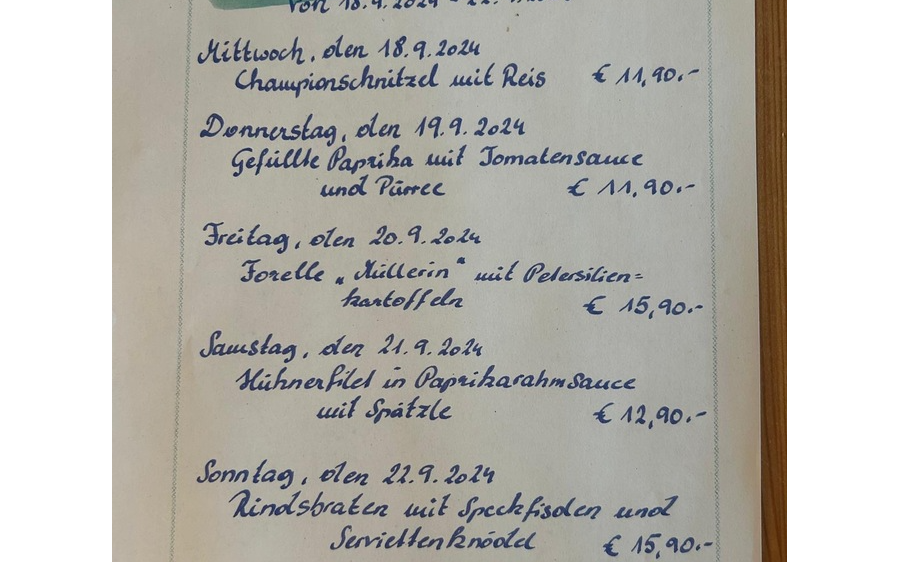 von 18.9.2024 - 22.
Mittwoch, den 18.9.2024
Championschnitzel mit Reis € 11,90.-
Donnerstag, den 19.9.2024
Gefüllte Paprika mit Tomatensauce
und Pürree € 11,90.-
Freitag, den 20.9.2024
Forelle „Müllerin" mit Petersilien=
kartoffeln € 15,90.-
Samstag, den 21.9.2024
Hühnerfilet in Paprikarahmsauce
mit Spätzle € 12,90.-
Sonntag, den 22.9.2024
Rindsbraten mit Speckfisolen und
Serviettenknödel € 15,90.-